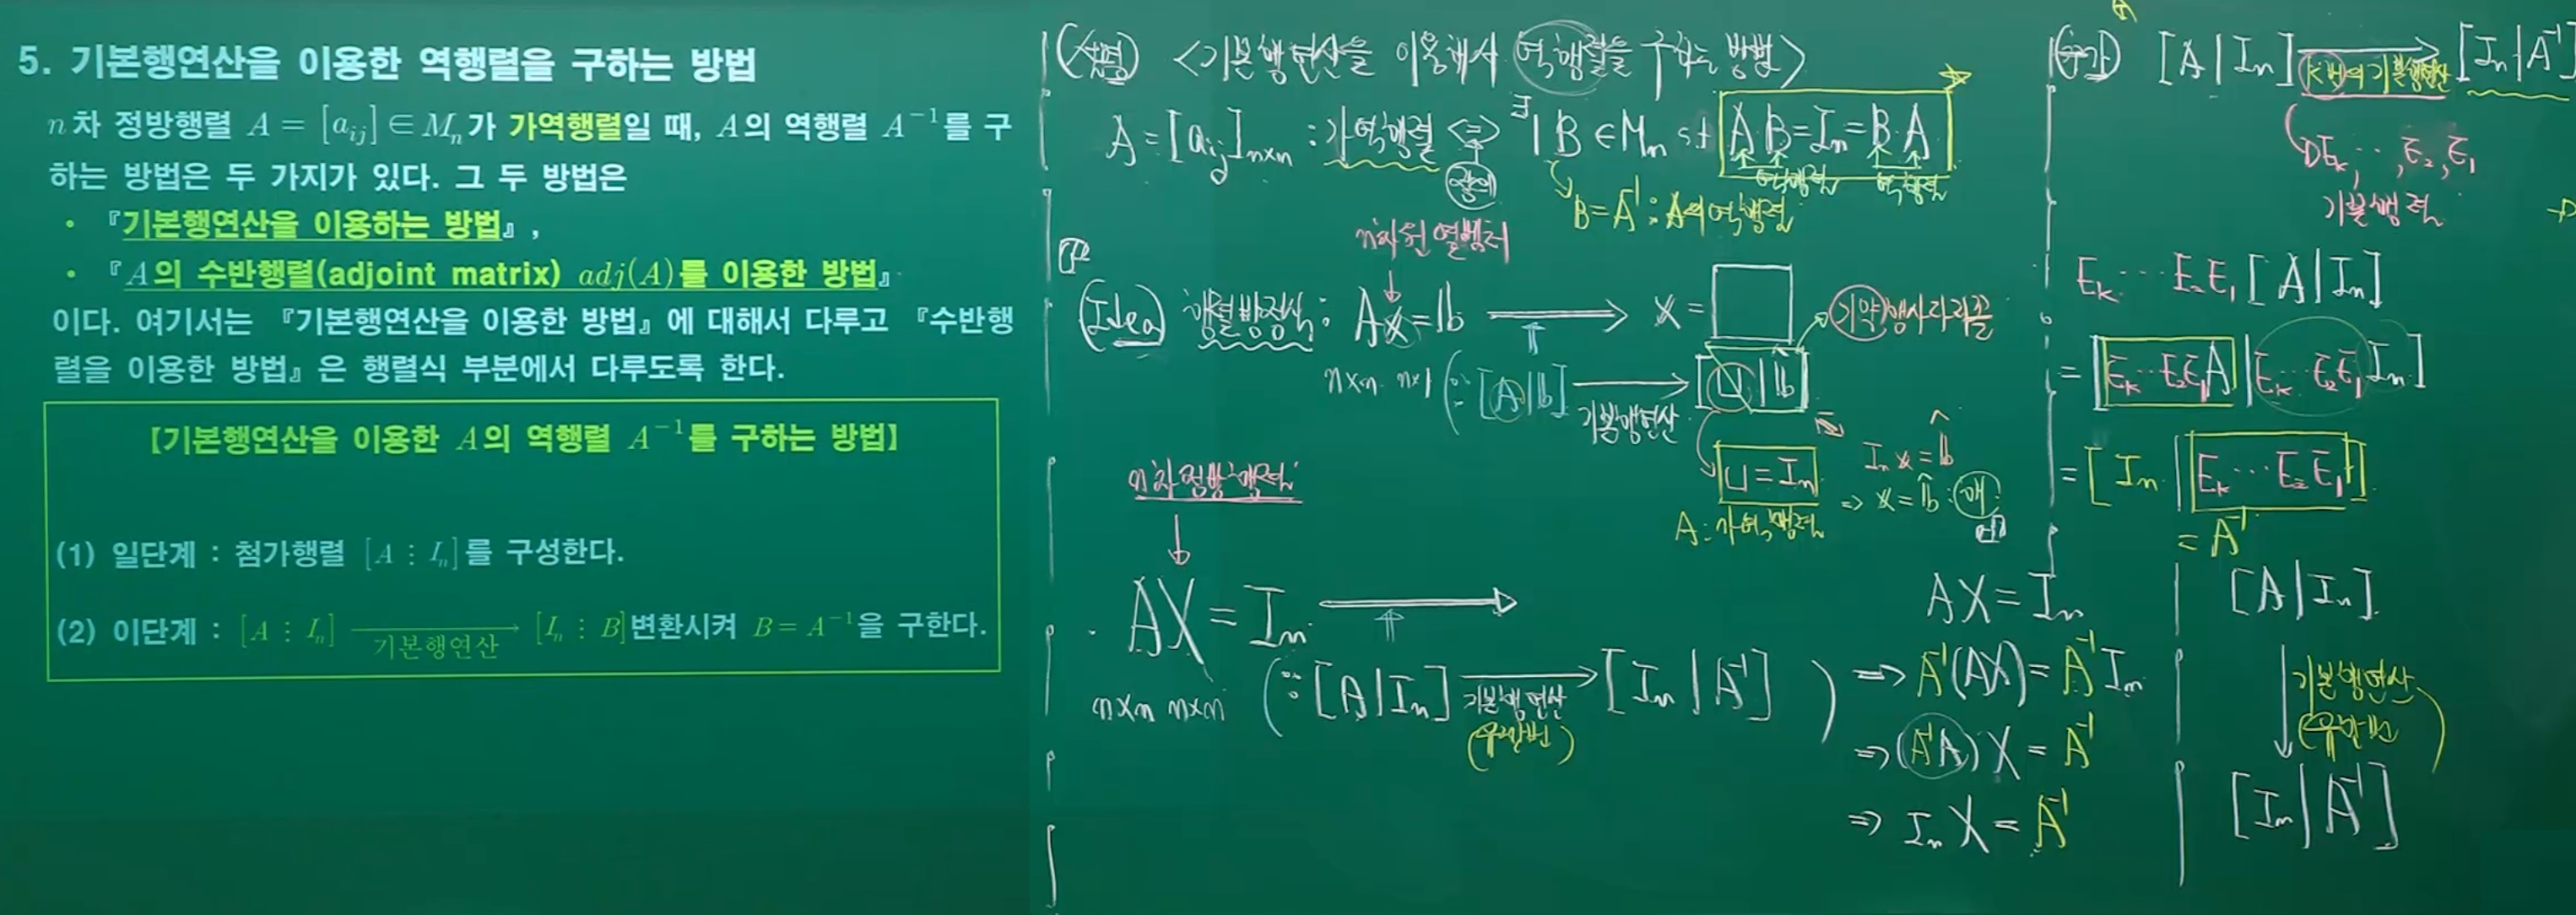 5. 기본행연산을 이용한 역행렬을 구하는 방법
n차 정방행렬 A = [a_ij] ∈ M_n가 가역행렬일 때, A의 역행렬 A⁻¹를 구
하는 방법은 두 가지가 있다. 그 두 방법은
• 『기본행연산을 이용하는 방법』,
• 『A의 수반행렬(adjoint matrix) adj(A)를 이용한 방법』
이다. 여기서는 『기본행연산을 이용한 방법』에 대해서 다루고 『수반행
렬을 이용한 방법』은 행렬식 부분에서 다루도록 한다.
【기본행연산을 이용한 A의 역행렬 A⁻¹를 구하는 방법】
(1) 일단계 : 첨가행렬 [A ⋮ I_n]를 구성한다.
(2) 이단계 : [A ⋮ I_n] → [I_n ⋮ B]변환시켜 B = A⁻¹을 구한다.
기본행연산
(설명) <기본행연산을 이용해서 역행렬을 구하는 방법>
A = [a_ij]_n×n : 가역행렬 ⇔ ∃1 B ∈ M_n s.t AB = I_n = BA
정의
역행렬 역행렬
B = A⁻¹ : A의 역행렬
n차원 열벡터
(Idea) 행렬방정식 : A𝕩 = 𝕓 ⟹ 𝕩 = □
기약행사다리꼴
n×n n×1 (∵ [A|𝕓] → [U|𝕓̂]
기본행연산
U = I_n
I_n 𝕩 = 𝕓̂
⇒ 𝕩 = 𝕓̂ : 해
A : 가역행렬
n차 정방행렬
AX = I_n ⟹
n×n n×n (∵ [A|I_n] → [I_n|A⁻¹])
기본행연산
(유한번)
AX = I_n
⇒ A⁻¹(AX) = A⁻¹I_n
⇒ (A⁻¹A)X = A⁻¹
⇒ I_n X = A⁻¹
(추가) [A|I_n] → [I_n|A⁻¹]
k번의 기본행연산
E_k, ⋯, E_2, E_1
기본행렬
E_k ⋯ E_2E_1[A|I_n]
= [E_k⋯E_2E_1A | E_k⋯E_2E_1I_n]
= [I_n | E_k⋯E_2E_1]
= A⁻¹
[A|I_n]
기본행연산
(유한번)
[I_n|A⁻¹]